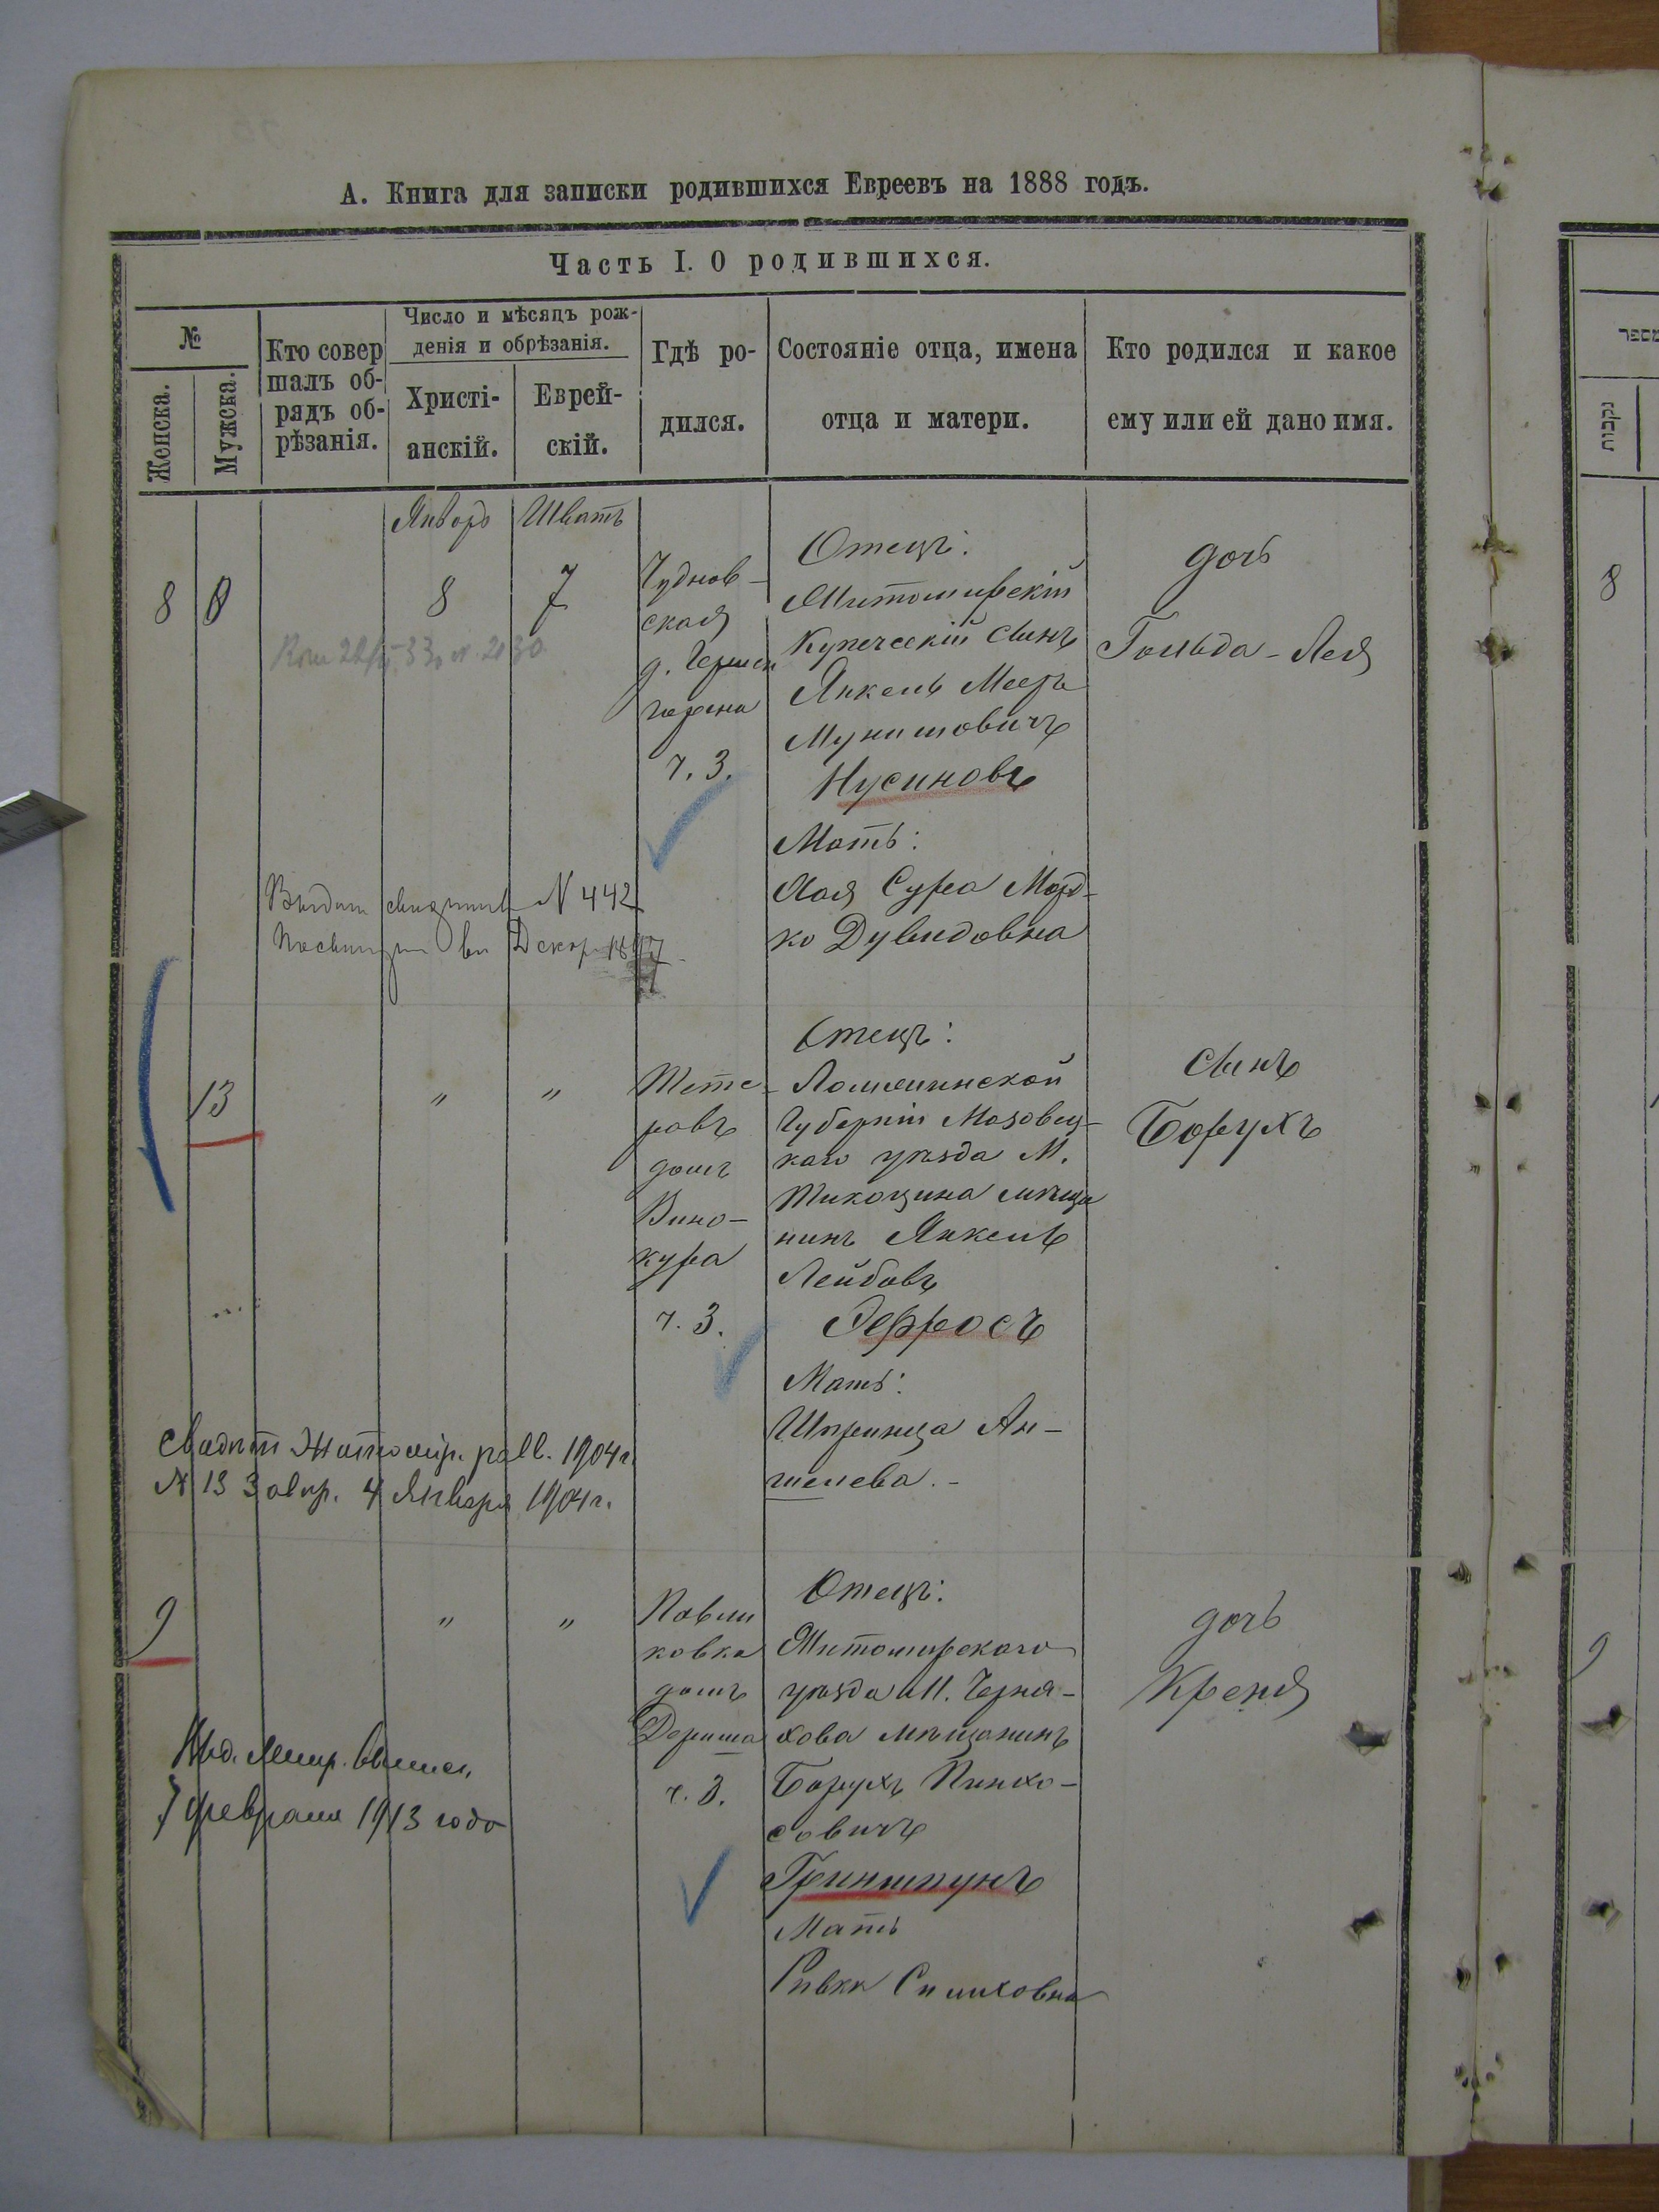 А. Книга для записки родившихся Евреевъ на 1888 годъ.
Часть I. О родившихся.
№
Женска.
Мужска.
Кто совер
шалъ об-
рядъ об-
рѣзанія.
Число и мѣсяцъ рож-
денія и обрѣзанія.
Христі-
анскій.
Еврей-
скій.
Гдѣ ро-
дился.
Состояніе отца, имена
отца и матери.
Кто родился и какое
ему или ей дано имя.
Январь
Шватъ
8
8
7
Чуднов-
ская
д.
ч. 3.
Отецъ:
Житомирскій
Купеческій сынъ
Янкель Мееръ
Мунишовичъ
Нусиновъ
Мать:
Хая Сура Морд-
ко Дувидовна
дочь
Гольда-Лея
N 442
13
"
"
Тете-
ревъ
домъ
Вино-
кура
ч. 3.
Отецъ:
Ломжинской
Губерніи Мазовец-
каго уѣзда М.
Тикоцина мѣща
нинъ Янкель
Лейбовъ
Эфросъ
Мать:
Шпринца Ан-
шелева.-
сынъ
Борухъ
Свидѣт Житомір. равв. 1904г.
N 13 4 Января 1904г.
9
"
"
Павли
ковка
домъ
ч. 3.
Отецъ:
Житомирскаго
уѣзда М. Черня-
хова мѣщанинъ
Борухъ Пинхо-
совичъ
Гриншпунъ
Мать
Ривка
дочь
Креня
7 февраля 1913 года
מספר
נקבות
8
9